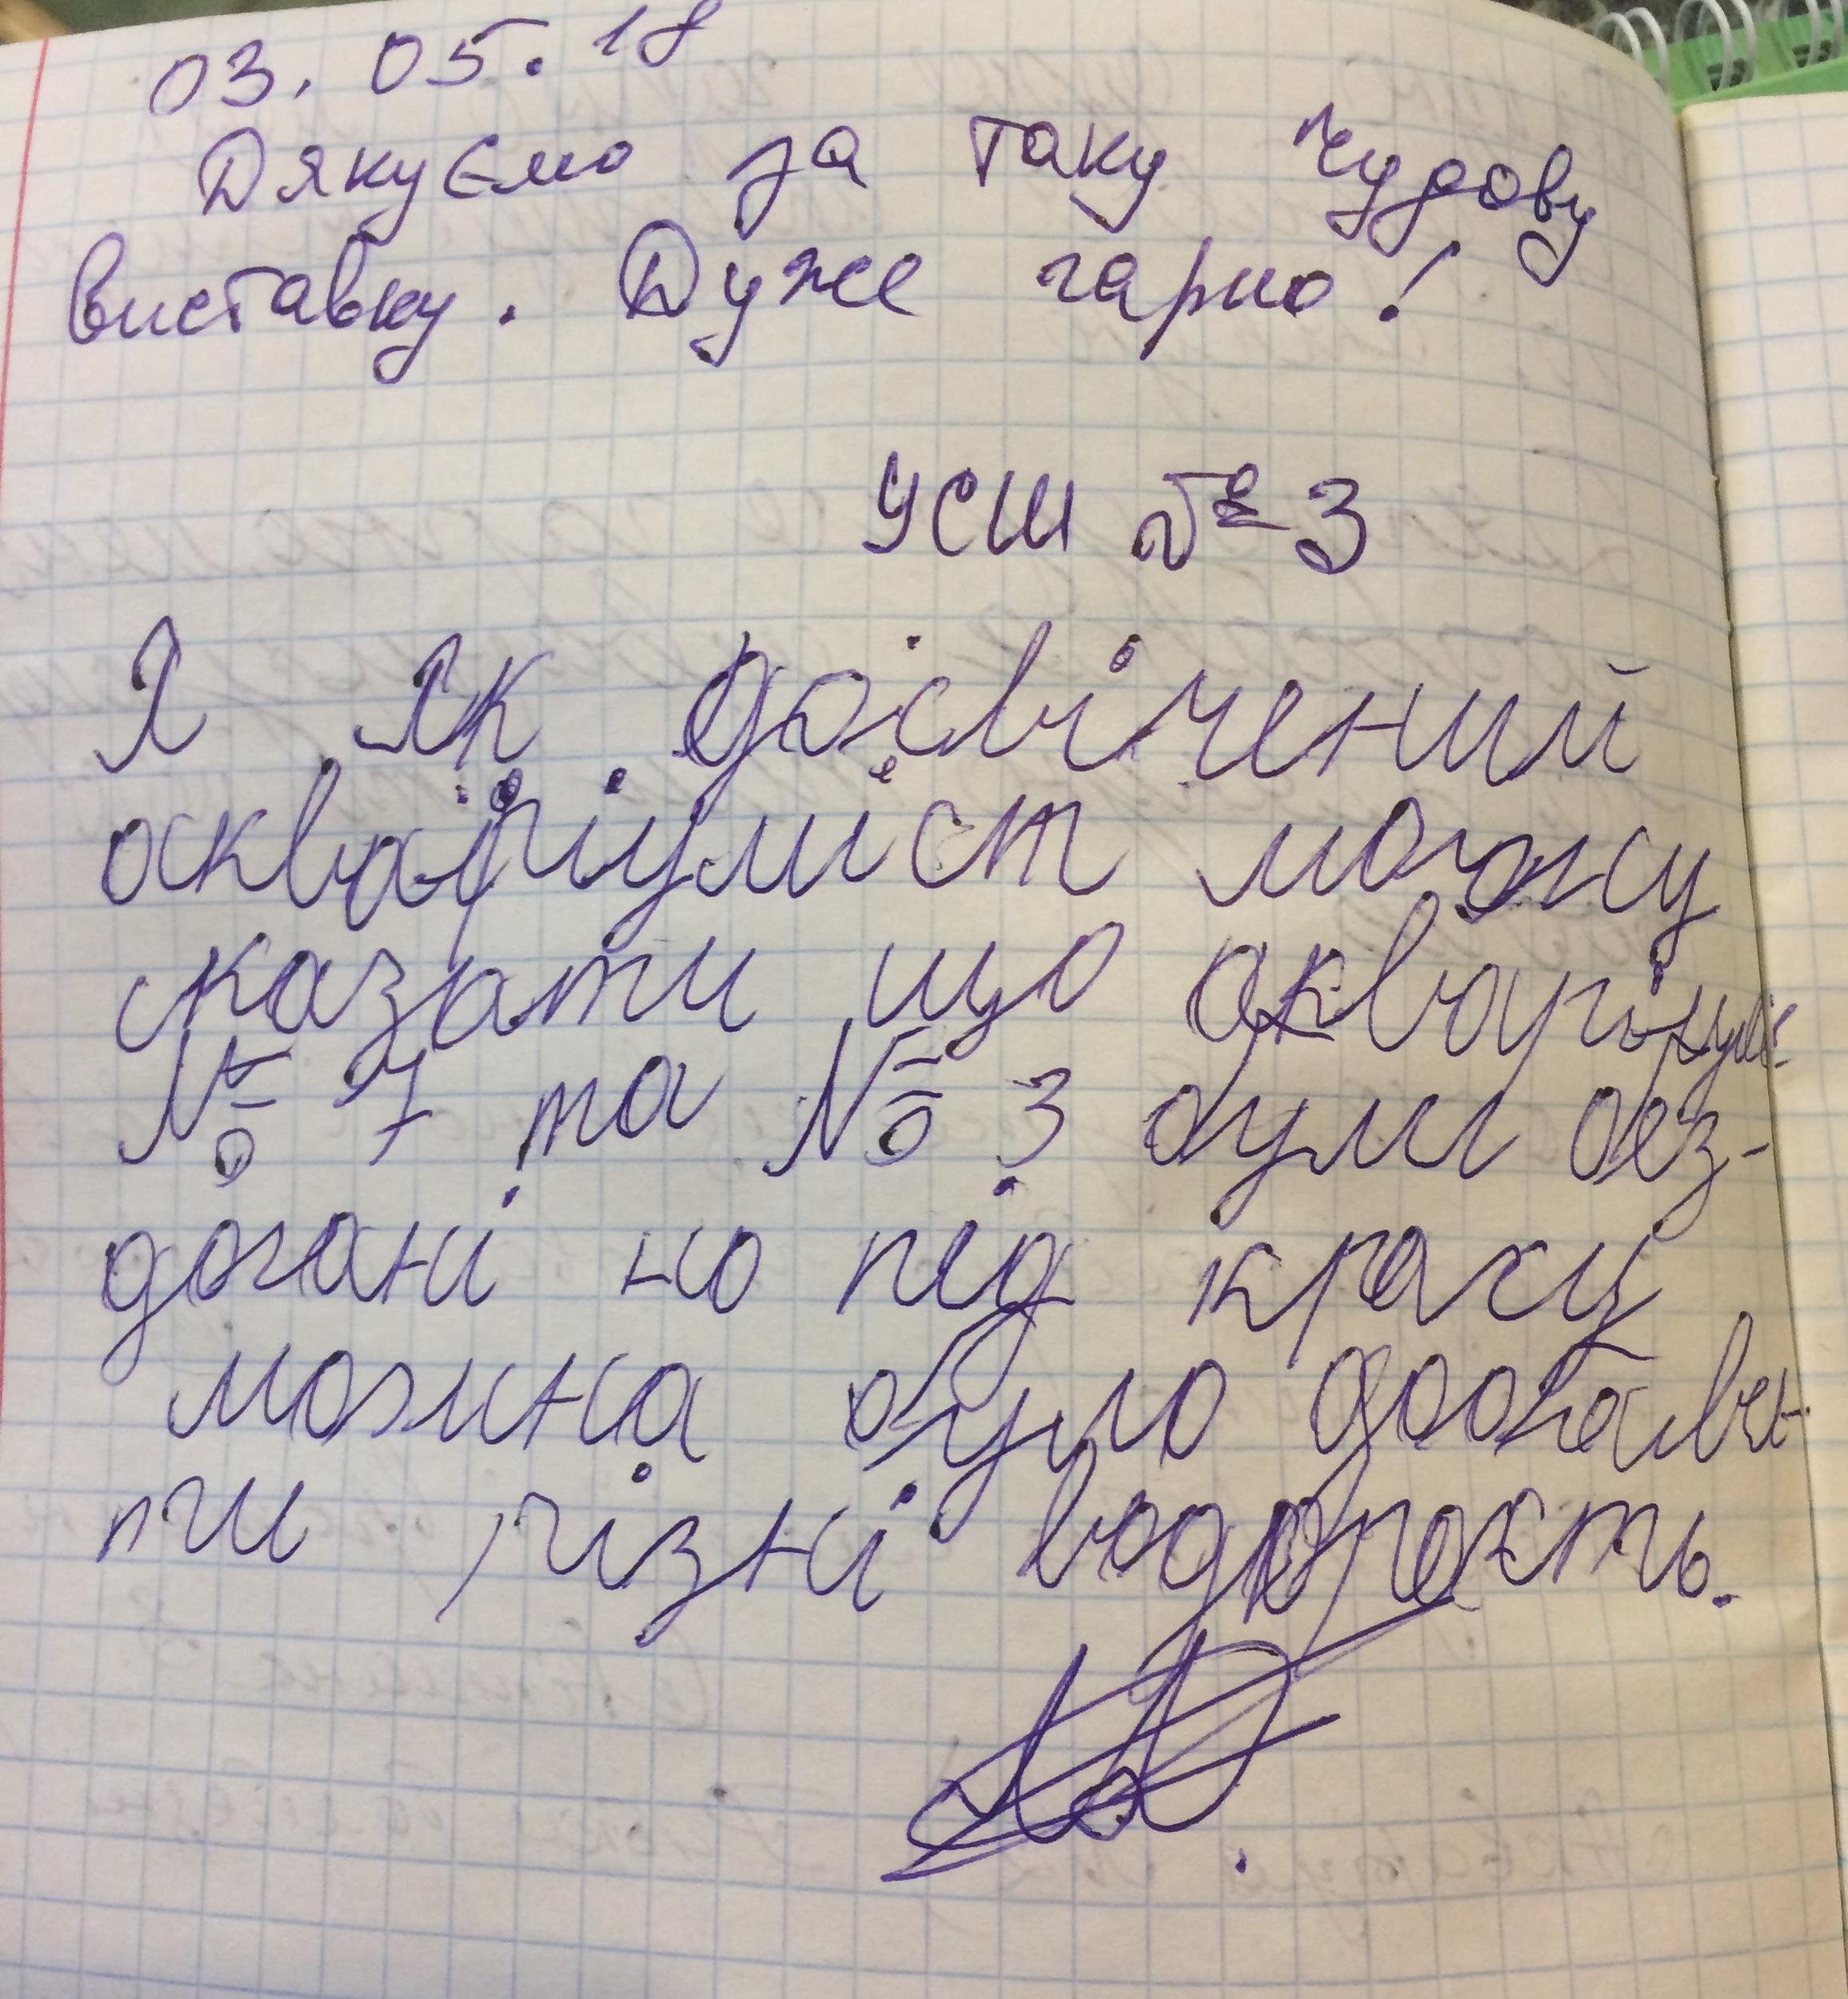 03. 05. 18
Дякуємо за таку чудову
виставку. Дуже гарно!
УСШ № 3
Я як досвічений
акваріуміст можу
сказати що акваріум
№ 7 та № 3 були без-
догані но під красу
можна було додав
ти різні водорость.